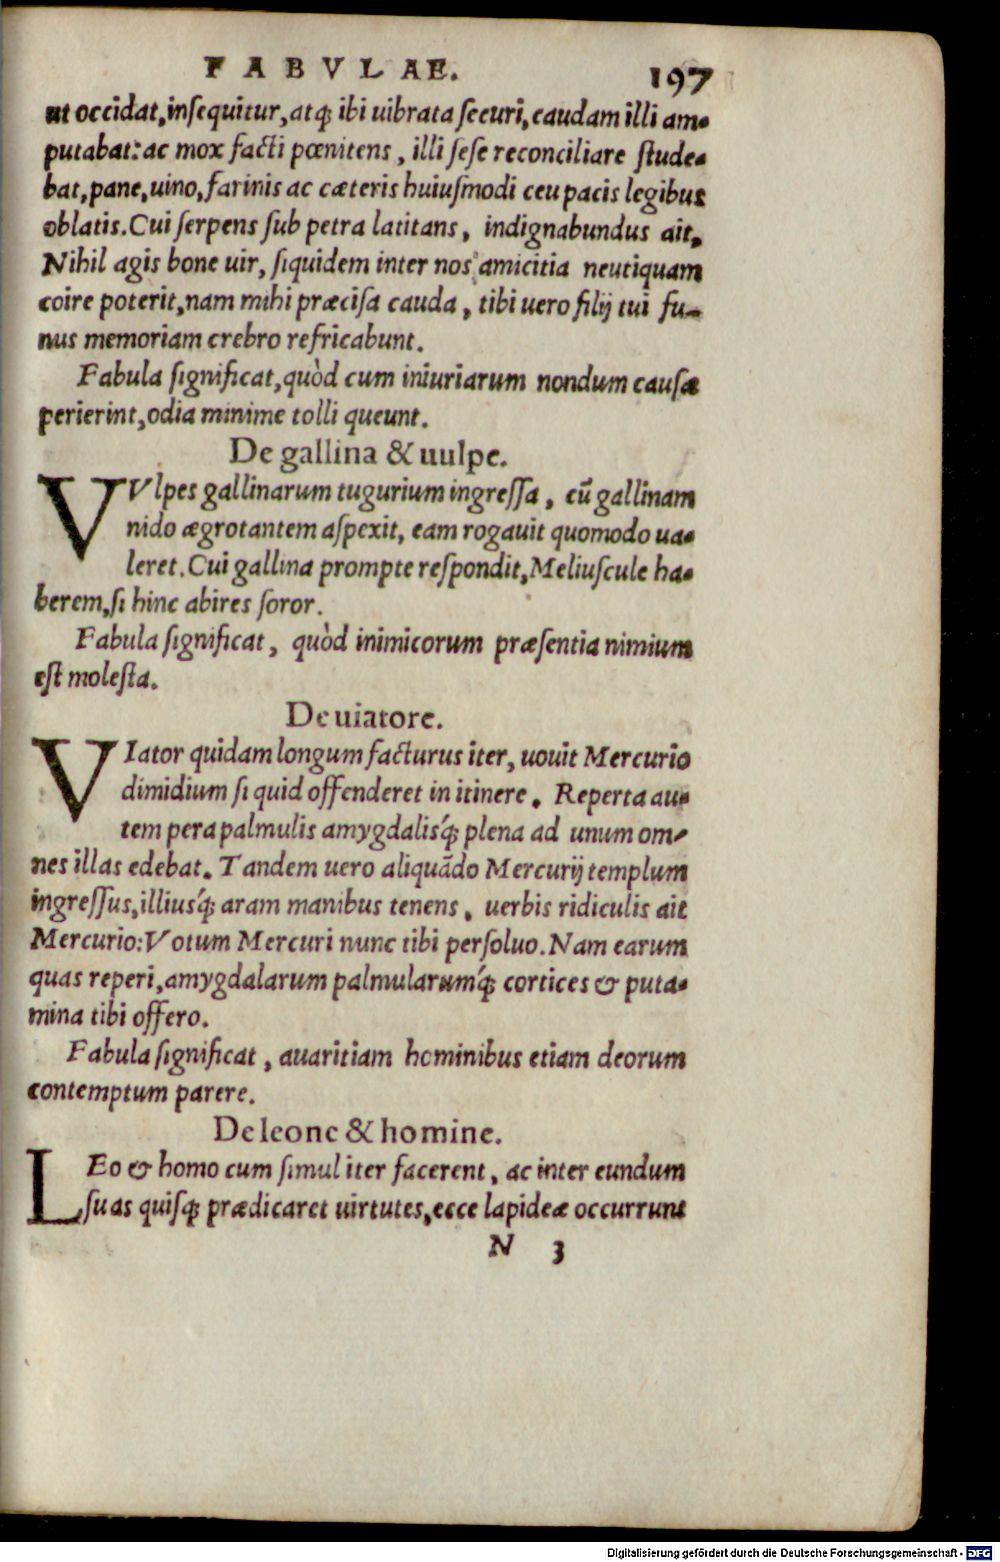 FABVLAE. 197
ut occidat, insequitur, atq; ibi uibrata securi, caudam illi am-
putabat: ac mox facti pœnitens, illi sese reconciliare stude-
bat, pane, uino, farinis ac cæteris huiusmodi ceu pacis legibus
oblatis. Cui serpens sub petra latitans, indignabundus ait,
Nihil agis bone uir, siquidem inter nos amicitia neutiquam
coire poterit, nam mihi præcisa cauda, tibi uero filij tui fu-
nus memoriam crebro refricabunt.
Fabula significat, quòd cum iniuriarum nondum causæ
perierint, odia minime tolli queunt.
De gallina & uulpe.
VVlpes gallinarum tugurium ingressa, cū gallinam
nido ægrotantem aspexit, eam rogauit quomodo ua-
leret. Cui gallina prompte respondit, Meliuscule ha-
berem, si hinc abires soror.
Fabula significat, quòd inimicorum præsentia nimium
est molesta.
De uiatore.
VIator quidam longum facturus iter, uouit Mercurio
dimidium si quid offenderet in itinere. Reperta au-
tem pera palmulis amygdalisq́; plena ad unum om-
nes illas edebat. Tandem uero aliquādo Mercurij templum
ingressus, illiusq́; aram manibus tenens, uerbis ridiculis ait
Mercurio: Votum Mercuri nunc tibi persoluo. Nam earum
quas reperi, amygdalarum palmularumq́; cortices & puta-
mina tibi offero.
Fabula significat, auaritiam hominibus etiam deorum
contemptum parere.
De leone & homine.
LEo & homo cum simul iter facerent, ac inter eundum
suas quisq; prædicaret uirtutes, ecce lapideæ occurrunt
N 3
Digitalisierung gefördert durch die Deutsche Forschungsgemeinschaft - DFG